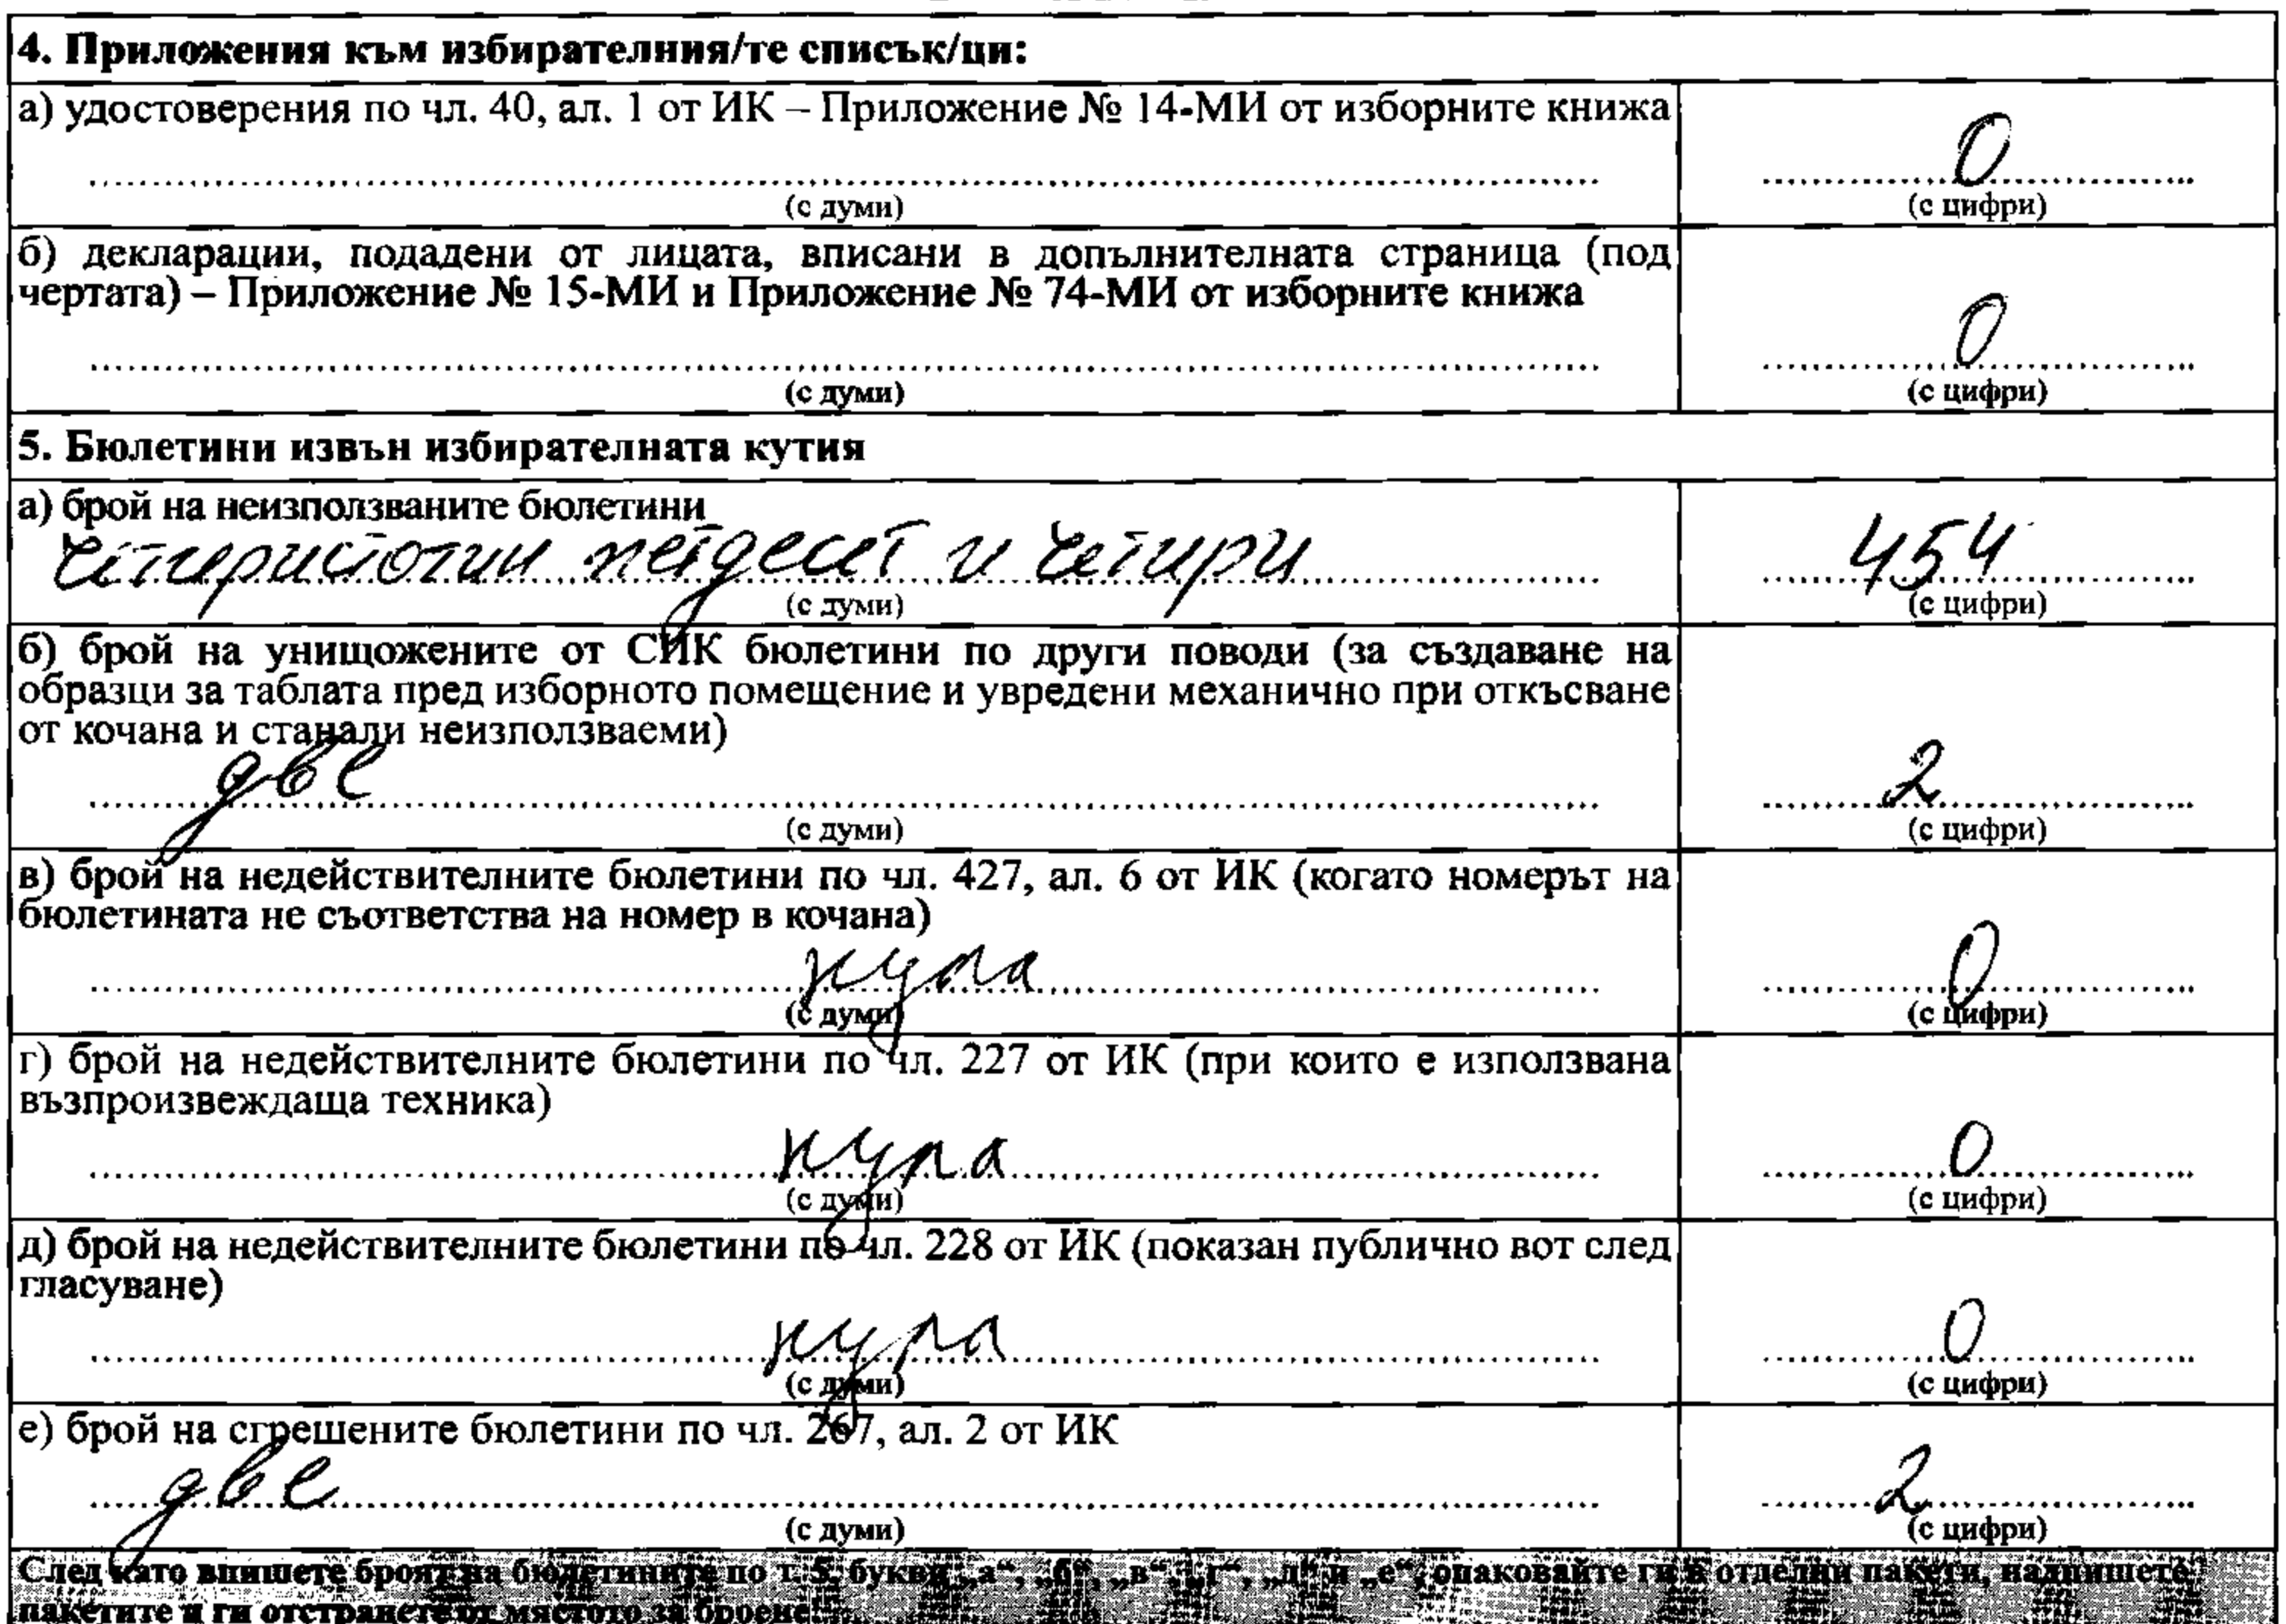 4. Приложения към избирателния/те списък/ци:
а) удостоверения по чл. 40, ал. 1 от ИК – Приложение № 14-МИ от изборните книжа
0
(с думи) (с цифри)
б) декларации, подадени от лицата, вписани в допълнителната страница (под
чертата) – Приложение № 15-МИ и Приложение № 74-МИ от изборните книжа
0
(с думи) (с цифри)
5. Бюлетини извън избирателната кутия
а) брой на неизползваните бюлетини
четиристотин петдесет и четири 454
(с думи) (с цифри)
б) брой на унищожените от СИК бюлетини по други поводи (за създаване на
образци за таблата пред изборното помещение и увредени механично при откъсване
от кочана и станали неизползваеми)
две 2
(с думи) (с цифри)
в) брой на недействителните бюлетини по чл. 427, ал. 6 от ИК (когато номерът на
бюлетината не съответства на номер в кочана)
нула 0
(с думи) (с цифри)
г) брой на недействителните бюлетини по чл. 227 от ИК (при които е използвана
възпроизвеждаща техника)
нула 0
(с думи) (с цифри)
д) брой на недействителните бюлетини по чл. 228 от ИК (показан публично вот след
гласуване)
нула 0
(с думи) (с цифри)
е) брой на сгрешените бюлетини по чл. 267, ал. 2 от ИК
две 2
(с думи) (с цифри)
След като впишете броят на бюлетините по т. 5, букви „а“, „б“, „в“, „г“, „д“ и „е“, опаковайте ги в отделни пакети, надпишете
пакетите и ги отстранете от мястото за броене!